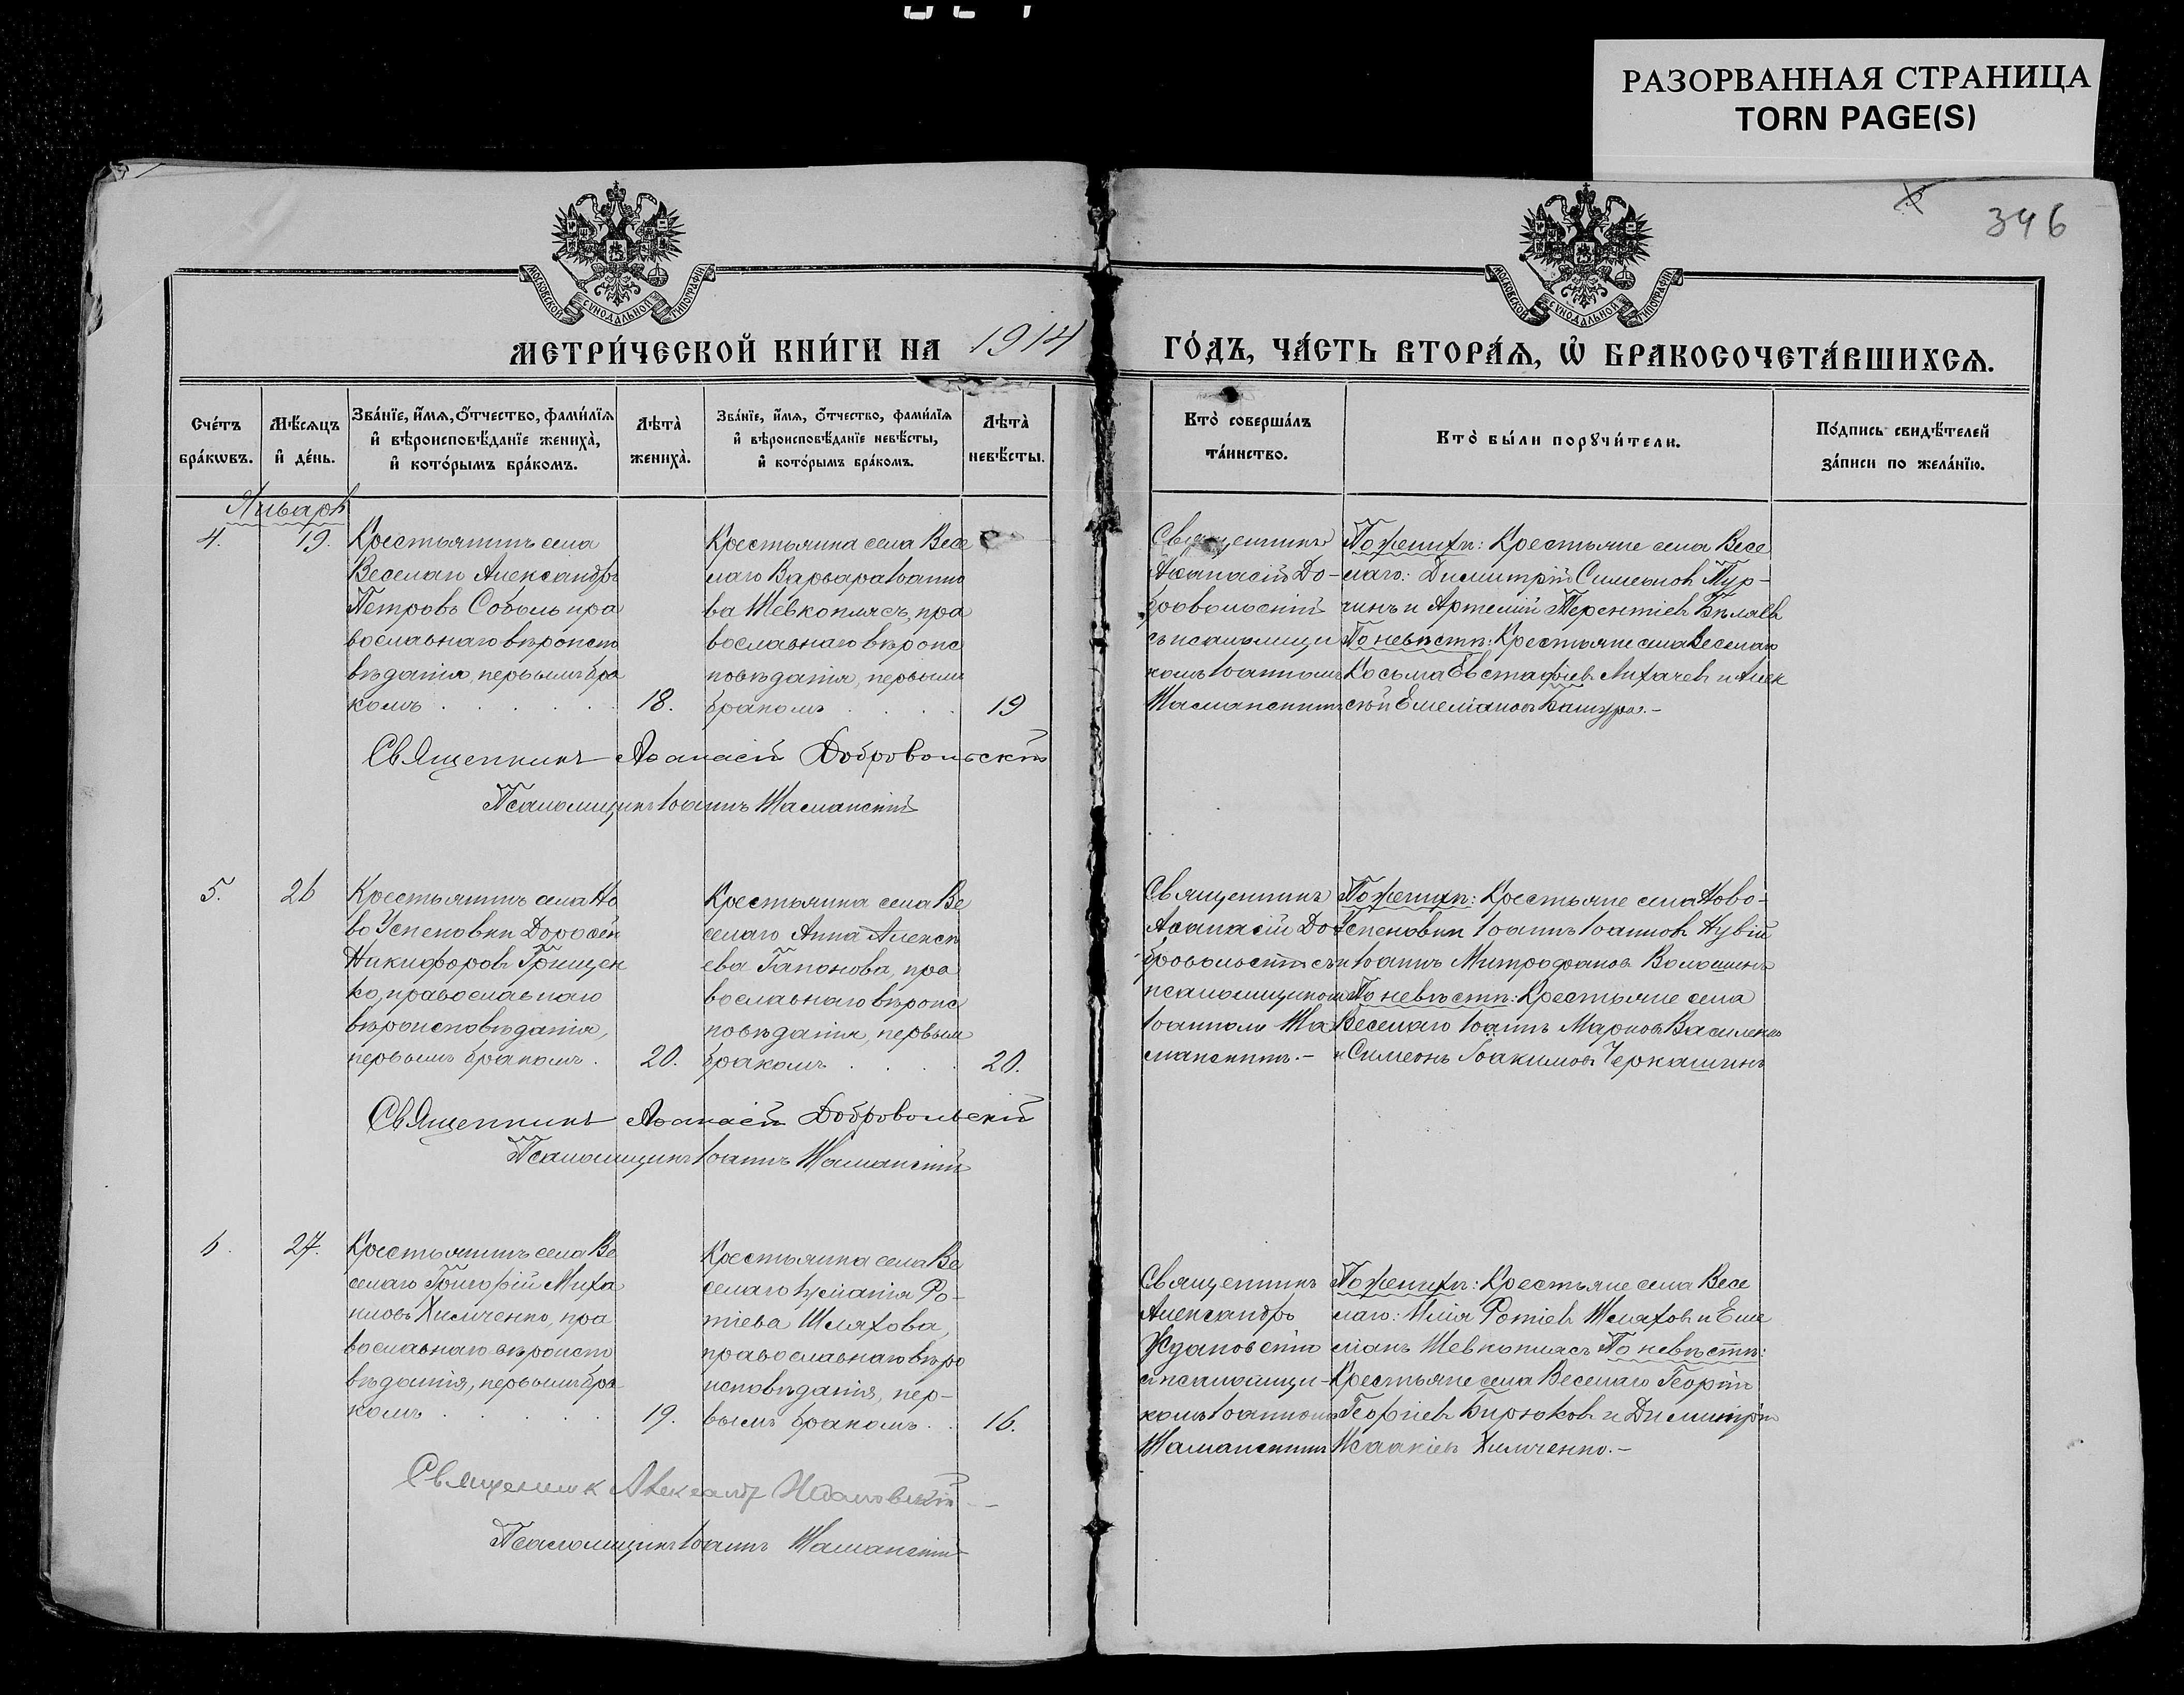 РАЗОРВАННАЯ СТРАНИЦА
TORN PAGE(S)
346
МОСКОВСКОЙ СѴНОДАЛЬНОЙ ТИПОГРАФІИ
МОСКОВСКОЙ СѴНОДАЛЬНОЙ ТИПОГРАФІИ
МЕТРИ́ЧЕСКОЙ КНИ́ГИ НА 1914 ГО́ДЪ, ЧА́СТЬ ВТОРА́Ѧ, Ѽ БРАКОСОЧЕТА́ВШИХСѦ.
Сче́тъ
бра́кѡвъ.
Мѣ́сѧцъ
и҆ де́нь.
Зва́нїе, и҆́мѧ, ѻ҆́тчество, фами́лїѧ
и҆ вѣроисповѣ́данїе жениха̀,
и҆ кото́рымъ бра́комъ.
Лѣта̀
жениха̀.
Зва́нїе, и҆́мѧ, ѻ҆́тчество, фами́лїѧ
и҆ вѣроисповѣ́данїе невѣ́сты,
и҆ кото́рымъ бра́комъ.
Лѣта̀
невѣ́сты.
Кто̀ соверша́лъ
та́инство.
Кто̀ бы́ли порꙋчи́тели.
По́дпись свидѣ́телей
за́писи по жела́нїю.
Январь
4.
19.
Крестьянинъ села
Веселаго Александръ
Петровъ Соболь пра
вославнаго вѣроиспо
вѣданія, первымъ бра
комъ
18.
Крестьянка села Весе
лаго Варвара Іоанно
ва Шевкоплясъ, пра
вославнаго вѣроис
повѣданія, первымъ
бракомъ
19
Священникъ
Аѳанасій До-
бровольскій
съ псаломщи
комъ Іоанномъ
Шаманскимъ
По женихѣ: Крестьяне села Весе
лаго: Димитрій Симеоновъ Тур-
чинъ и Артемій Терентіевъ Бѣлаевъ
По невѣстѣ: Крестьяне села Веселаго
Косьма Евстафіевъ Лихачевъ и Алек
сѣй Емеліановъ Башура.-
Священникъ Аѳанасій Добровольскій
Псаломщикъ Іоаннъ Шаманскій
5.
26
Крестьянинъ села Но
во Успеновки Дороѳей
Никифоровъ Грищен
ко, православнаго
вѣроисповѣданія,
первымъ бракомъ.
20.
Крестьянка села Ве
селаго Анна Алексѣ
ева Гапонова, пра
вославнаго вѣроис
повѣданія, первым
бракомъ
20.
Священникъ
Аѳанасій До
бровольскій съ
псаломщикомъ
Іоанномъ Ша
манскимъ.-
По женихѣ: Крестьяне села Ново-
Успеновки Іоаннъ Іоанновъ Нувій
и Іоаннъ Митрофановъ Волошинъ
По невѣстѣ: Крестьяне села
Веселаго Іоаннъ Марковъ Василенко
и Симеонъ Іоакимовъ Черкашинъ
Священникъ Аѳанасій Добровольскій
Псаломщикъ Іоаннъ Шаманскій
6.
27.
Крестьянинъ села Ве
селаго Григорій Миха
иловъ Химченко, пра
вославнаго вѣроиспо
вѣданія, первымъ бра
комъ
19.
Крестьянка села Ве
селаго Іуліанія Фо-
тіева Шляхова,
православнаго вѣро
исповѣданія, пер-
вымъ бракомъ.
16.
Священникъ
Александръ
Ждановскій
съ псаломщи-
комъ Іоанномъ
Шаманскимъ
По женихѣ: Крестьяне села Весе
лаго: Илія Фотіевъ Шляховъ и Еме
ліанъ Шевкоплясъ По невѣстѣ:
Крестьяне села Веселаго Георгій
Георгіевъ Бирюковъ и Димитрій
Исаакіевъ Химченко.-
Священник Александр Ждановскій
Псаломщикъ Іоаннъ Шаманскій